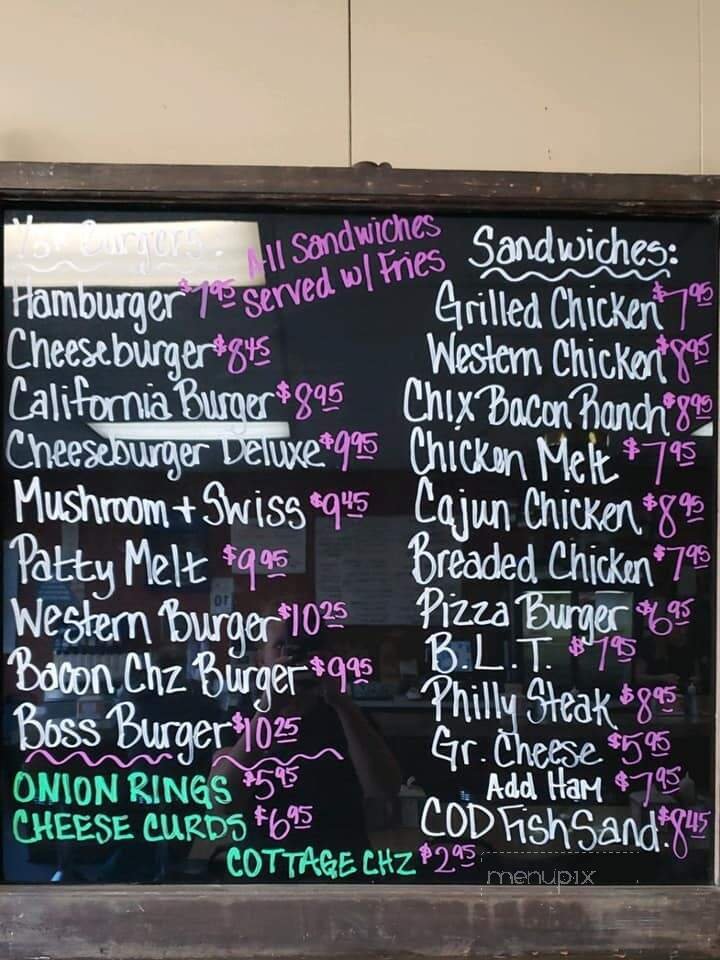 Burgers:
All Sandwiches
Served w/ Fries
Hamburger $7.95
Cheeseburger $8.45
California Burger $8.95
Cheeseburger Deluxe $9.95
Mushroom + Swiss $9.45
Patty Melt $9.95
Western Burger $10.25
Bacon Chz Burger $9.95
Boss Burger $10.25
ONION RINGS $5.95
CHEESE CURDS $6.95
COTTAGE CHZ $2.95
Sandwiches:
Grilled Chicken $7.95
Western Chicken $8.95
Chix Bacon Ranch $8.95
Chicken Melt $7.95
Cajun Chicken $8.95
Breaded Chicken $7.95
Pizza Burger $6.95
B.L.T. $7.95
Philly Steak $8.95
Gr. Cheese $5.95
Add Ham $7.95
COD Fish Sand. $8.45
menupix